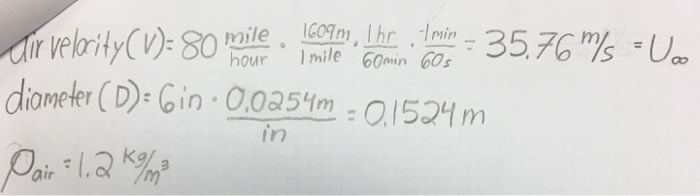 air velocity (V) = 80 mile/hour · 1609m/1 mile · 1 hr/60min · 1 min/60s = 35.76 m/s = U∞
diameter (D) = 6in · 0.0254m/in = 0.1524m
ρair = 1.2 kg/m³